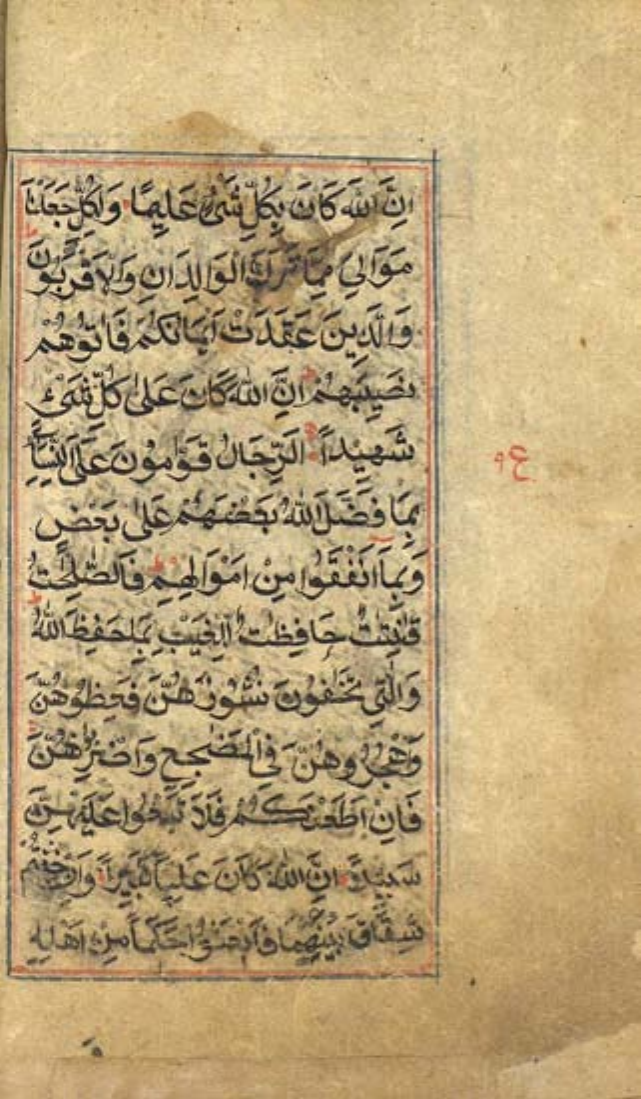 اِنَّ اللّٰهَ كَانَ بِكُلِّ شَیْءٍ عَلِيمًا وَلِكُلٍّ جَعَلْنَا
مَوَالِیَ مِمَّا تَرَكَ الْوَالِدَانِ وَالاَقْرَبُونَ
وَالَّذِينَ عَقَدَتْ اَيْمَانُكُمْ فَاٰتُوهُمْ
نَصِيبَهُمْ اِنَّ اللّٰهَ كَانَ عَلیٰ كُلِّ شَیْءٍ
شَهِيْداً اَلرِّجَالُ قَوّٰمُونَ عَلَی النِّسَاۤءِ
بِمَا فَضَّلَ اللّٰهُ بَعْضَهُمْ عَلیٰ بَعْضٍ
وَبِمَاۤ اَنْفَقُوا مِنْ اَمْوَالِهِمْ فَالصّٰلِحٰتُ
قٰنِتٰتٌ حَافِظٰتٌ لِلْغَيْبِ بِمَا حَفِظَ اللّٰهُ
وَالّٰتِی تَخَافُونَ نُشُوزَهُنَّ فَعِظُوهُنَّ
وَاهْجُرُوهُنَّ فِی الْمَضٰجِعِ وَاضْرِبُوهُنَّ
فَاِنْ اَطَعْنَكُمْ فَلَا تَبْغُوا عَلَيْهِنَّ
سَبِيلاً اِنَّ اللّٰهَ كَانَ عَلِيًّا كَبِيراً وَاِنْ خِفْتُمْ
شِقَاقَ بَيْنِهِمَا فَابْعَثُوا حَكَماً مِنْ اَهْلِهِ
ع ٩